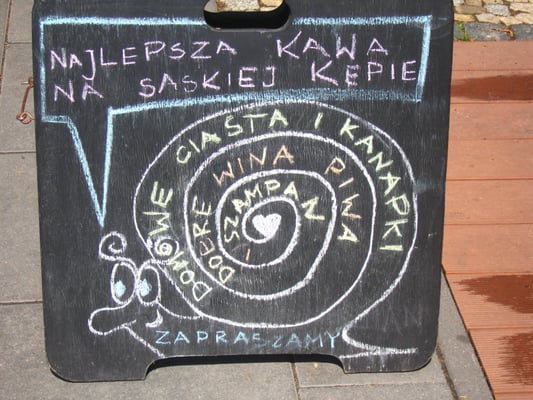 NAJLEPSZA KAWA
NA SASKIEJ KĘPIE
DOMOWE CIASTA I KANAPKI
DOBRE WINA PIWA
I SZAMPAN
ZAPRASZAMY